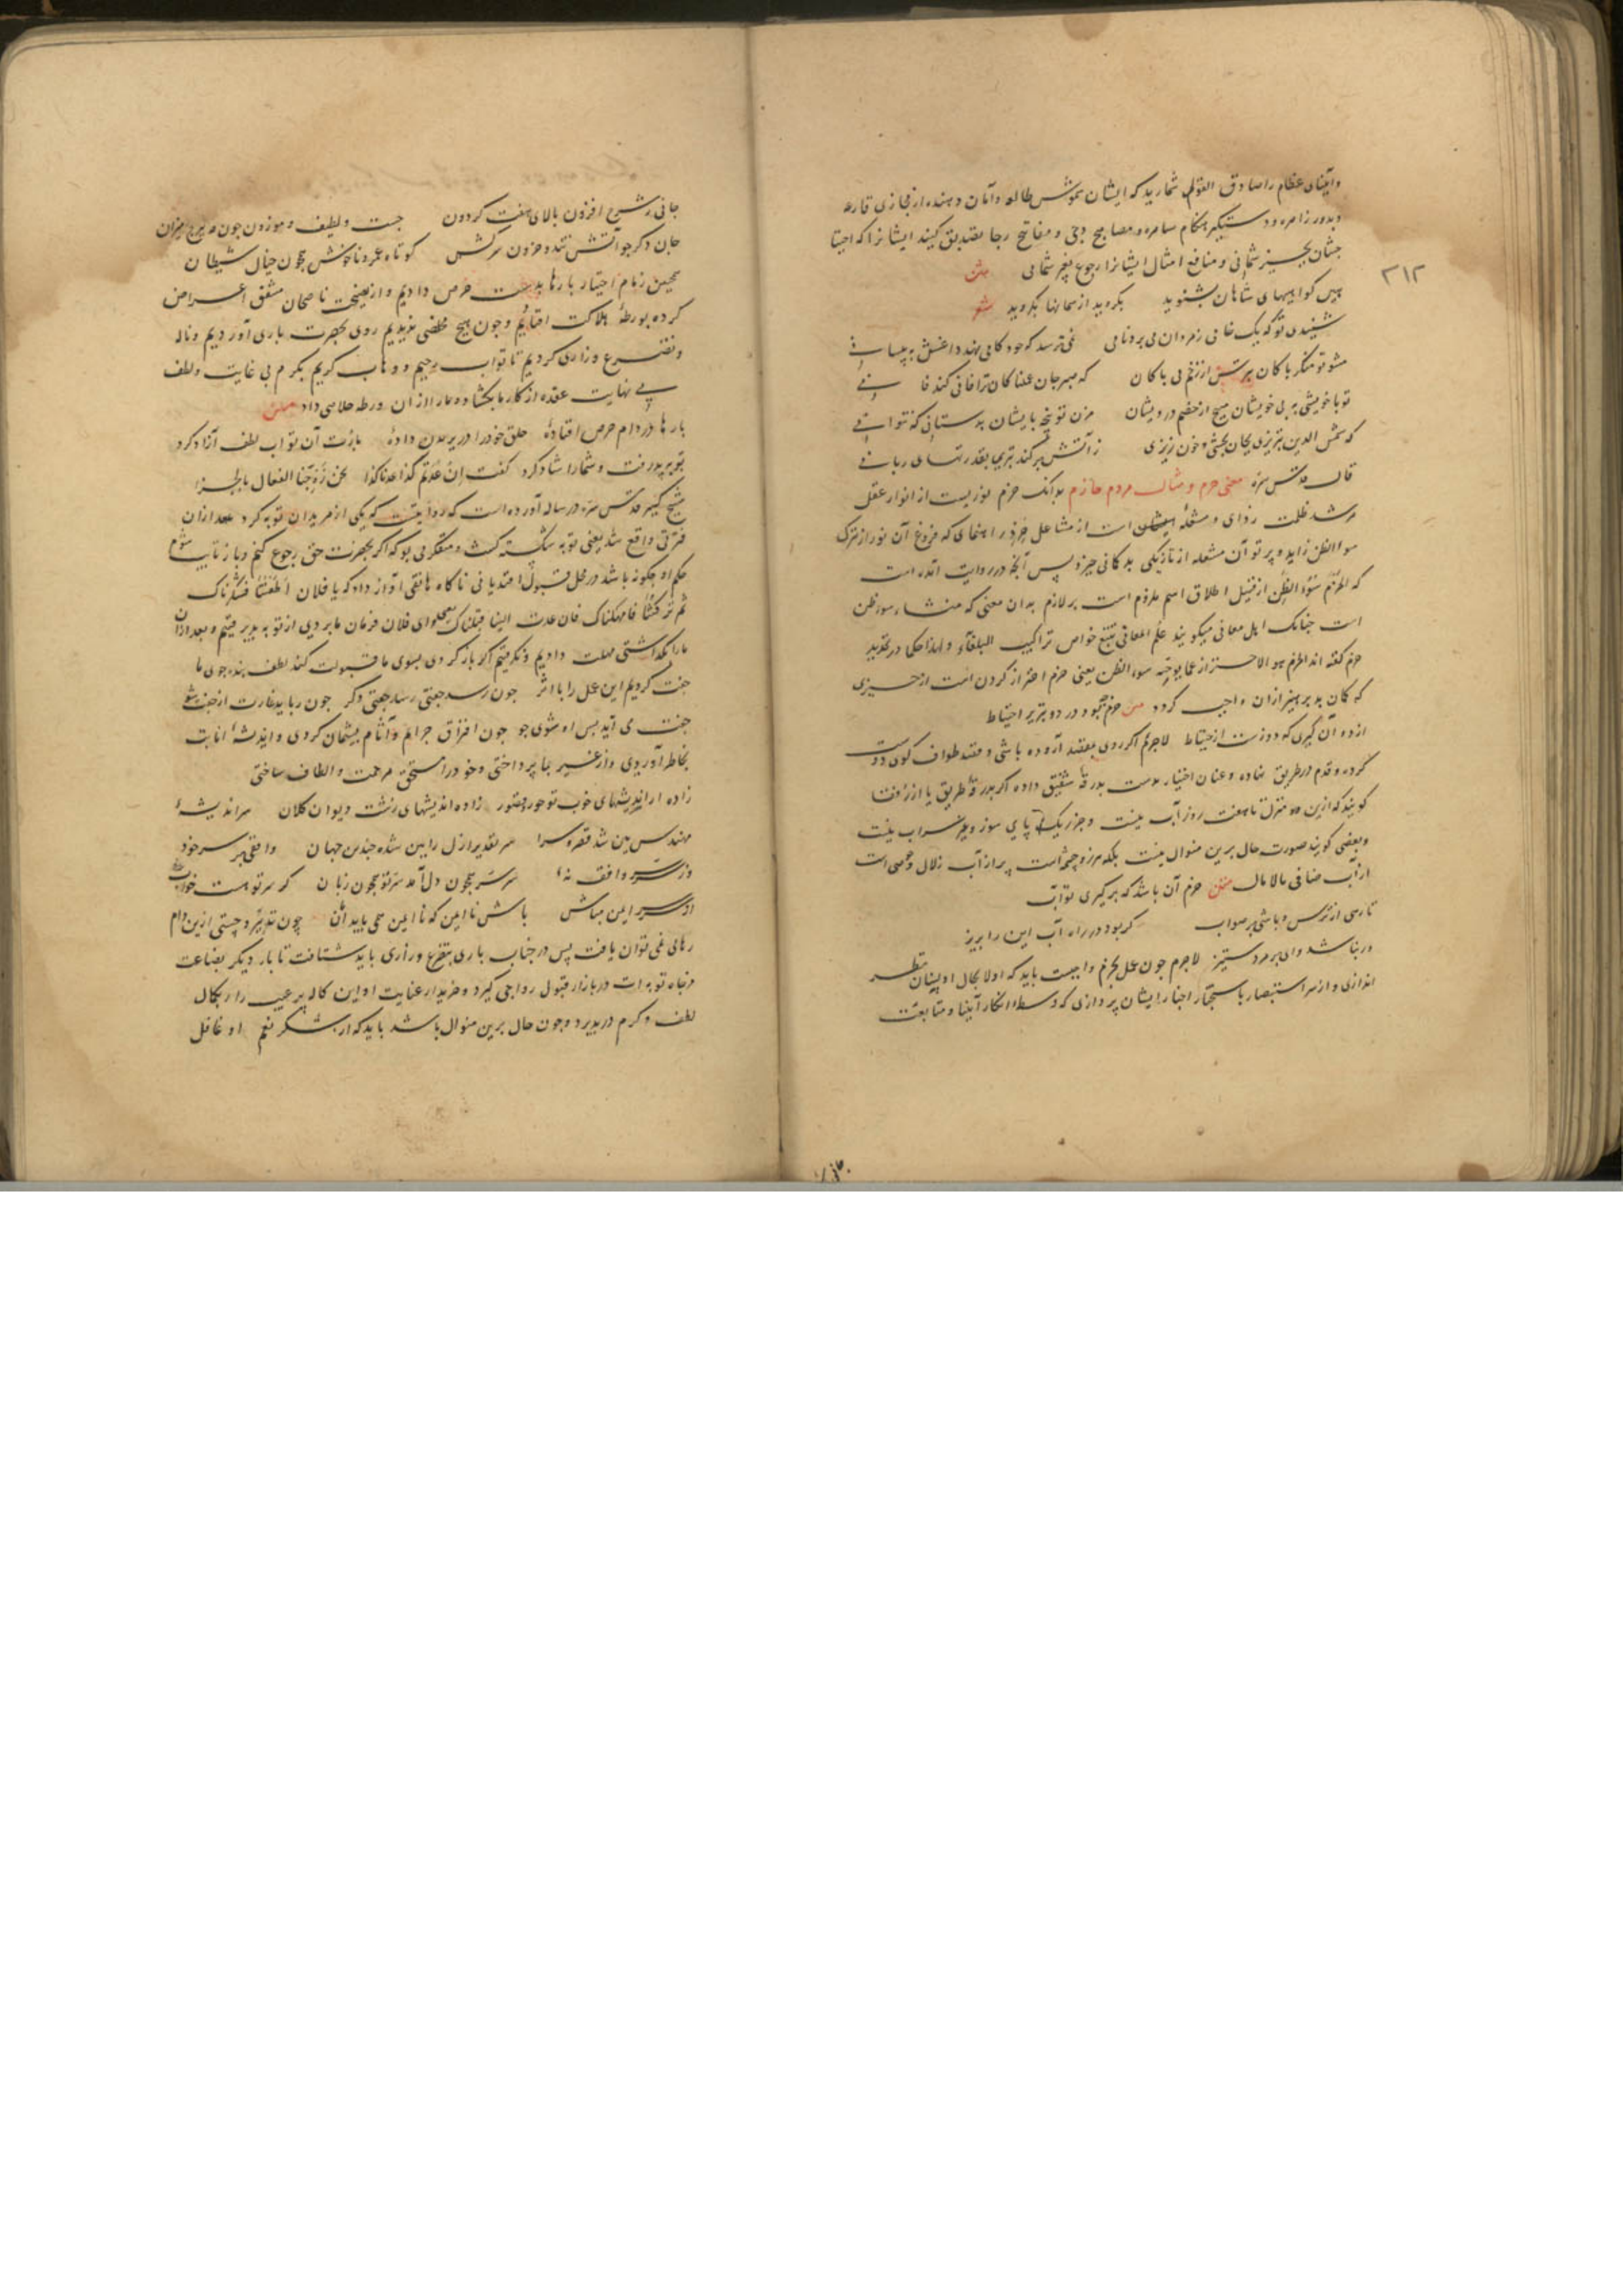 ۳۱۲
وانبیای عظام را صادق القول شمارید که ایشان
و بدور زا مره و دستگیر هنگام سامره و مصابیح دجی و مفاتیح رجا تصدیق کنید ایشانرا که احتیا
جشان بچیز شما نی و منافع امثال ایشانرا رجوع بغیر شما نی
پس کواهیهای شاهان بشنوید بکروید از سمانها بکروید
شنیدی تو که یک خامی زمردان می برد نامی نمی ترسد که خود کامی نهد داغش به پیشانی
مشو تو منکر پاکان بترس از زخم بی باکان که صبر جان غمناکان ترا فانی کند فانی
تو باخویشی به بی خویشان مپیچ ای خصم درویشان مزن تو پنجه با ایشان بدستانی که نتوانی
که شمس الدین تبریزی بجان بخشی و خون ریزی ز آتش بر کند تیزی بقدرتهای ربانی
قال قدس سره معنی حزم و مثال مردم حازم بدانک حزم نوریست از انوار عقل
مرشد ظلمت زدای و مشعلهٔ ایشان است از مشاعل خرد راهنمای که فروغ آن نور از ترک
سوا الظن زاید و پرتو آن مشعله از تاریکی بدکمانی خیزد پس آنچه در روایت آمده است
که الحزم سوء الظن از قبیل اطلاق اسم ملزوم است بر لازم بدان معنی که منشاء سوء ظن
است چنانک اهل معانی میگویند علم المعانی تتبع خواص تراکیب البلغاء و لهذا حکما در تحدید
حزم گفته اند الحزم هو الاحتراز عما یوجبه سوء الظن یعنی حزم احتراز کردن است از چیزی
که کمان بد پرهیز ازان واجب گردد حزم چه بود در دو تدبیر احتیاط
از دو آن گیری که دورست از خباط لاجرم اگر روی بمقصد آورده باشی و قصد طواف کوی دوست
کرده و قدم در طریق نهاده و عنان اختیار بدست بدرقه شفیق داده اگر بدرقهٔ طریق یا از رفقا
گویند که ازین ده منزل تا هفت روز آب نیست و جز ریک پای سوز و غیر سراب نیست
و بعضی گویند صورت حال برین منوال نیست بلکه هر روز چشمه است پر از آب زلال و حوضی است
از آب صافی مالامال حزم آن باشد که برگیری تو آب
تا رهی از ترس و باشی بر صواب گر بود در راه آب این را بریز
ور نباشد وای بر مرد ستیز لاجرم چون عمل بحزم واجبست باید که اولا بحال او ایشان نظر
اندازی و از سر استبصار باستخبار اخبار ایشان پردازی که وسط انکار انبیا و متابعت
جانی ز شرح افزون بالای هفت گردون چست و لطیف و موزون چون مه ببرج میزان
جان دگر چو آتش تند و حرون سرکش کوتاه عمر و ناخوش همچون خیال شیطان
همچنین زمام اختیار بارها بدست حرص دادیم و از نصیحت ناصحان مشفق اعراض
کرده بورطهٔ هلاکت افتادیم و چون هیچ مخلصی ندیدیم روی بحضرت باری آوردیم و ناله
و تضرع و زاری کردیم تا تواب رحیم و وهاب کریم بکرم بی غایت و لطف
بی نهایت عقده از کار ما بکشاده ما را از ان ورطه خلاصی داد
بارها در دام حرص افتادهٔ حلق خود را در بریدن دادهٔ بازت آن تواب لطف آزاد کرد
توبه پذرفت و شمارا شاد کرد گفت ان عدتم کذا عدنا کذا نحن زوجنا الفعال بالجزا
شیخ کبیر قدس سره در رساله آورده است که روایتست که یکی از مریدان توبه کرد بعد ازان
فترتی واقع شد یعنی توبه شکسته گشت و متفکر می بود که اگر بحضرت حق رجوع کنم و باز تایب شوم
حکم او چکونه باشد در محل قبول افتد یا نی ناگاه هاتفی آواز داد که یا فلان اطعتنا فشکرناک
ثم ترکتنا فامهلناک فان عدت الینا قبلناک یعنی ای فلان فرمان ما بردی از تو پذیرفتیم و بعد ازان
ما را بگذاشتی مهلت دادیم و نگرفتیم اگر بازگردی بسوی ما قبولت کند لطف بنده جوی ما
جفت کردیم این عمل را با اثر چون رسد جفتی رسد جفتی دگر چون رباید غارت از جفت شوی
جفت می آید پس او شوی جو چون اقتراف جرایم و آثام پشیمان کردی و اندیشهٔ انابت
بخاطر آوردی و از غیر بما پرداختی و خود را مستحق مرحمت و الطاف ساختی
زاده از اندیشهای خوب تو حور و قصور زاده اندیشهای زشت دیوان کلان سر اندیشهٔ
مهندس بین شد قصر و سرا سر تقدیر ازل را بین شده چندین جهان واقفی بر سر خود
وز سر سر واقف نه سر سر همچون دل آمد سر تو همچون زبان
ایمن مباش باش ناایمن که ناایمن همی یابد امان چون بتدبیر و چستی ازین دام
رهایی نمی توان یافت پس در جناب باری بتضرع و زاری باید شتافت تا بار دیگر بضاعت
مزجاة توبه ات در بازار قبول رواجی گیرد و خریدار عنایت او این کاله پر عیب را بکمال
لطف و کرم درپذیرد و چون حال برین منوال باشد باید که از شکر نعم او غافل